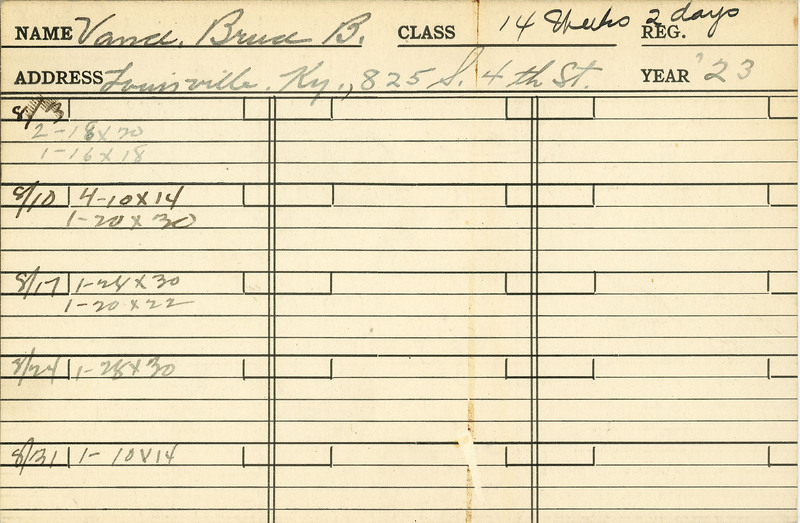 NAME Vance, Bruce B. CLASS 14 Weeks 2 days REG.
ADDRESS Louisville, Ky., 825 S. 4th St. YEAR '23
8/3
2-18x20
1-16x18
8/10 4-10x14
1-20x30
8/17 1-28x30
1-20x22
8/24 1-28x30
8/31 1-10x14